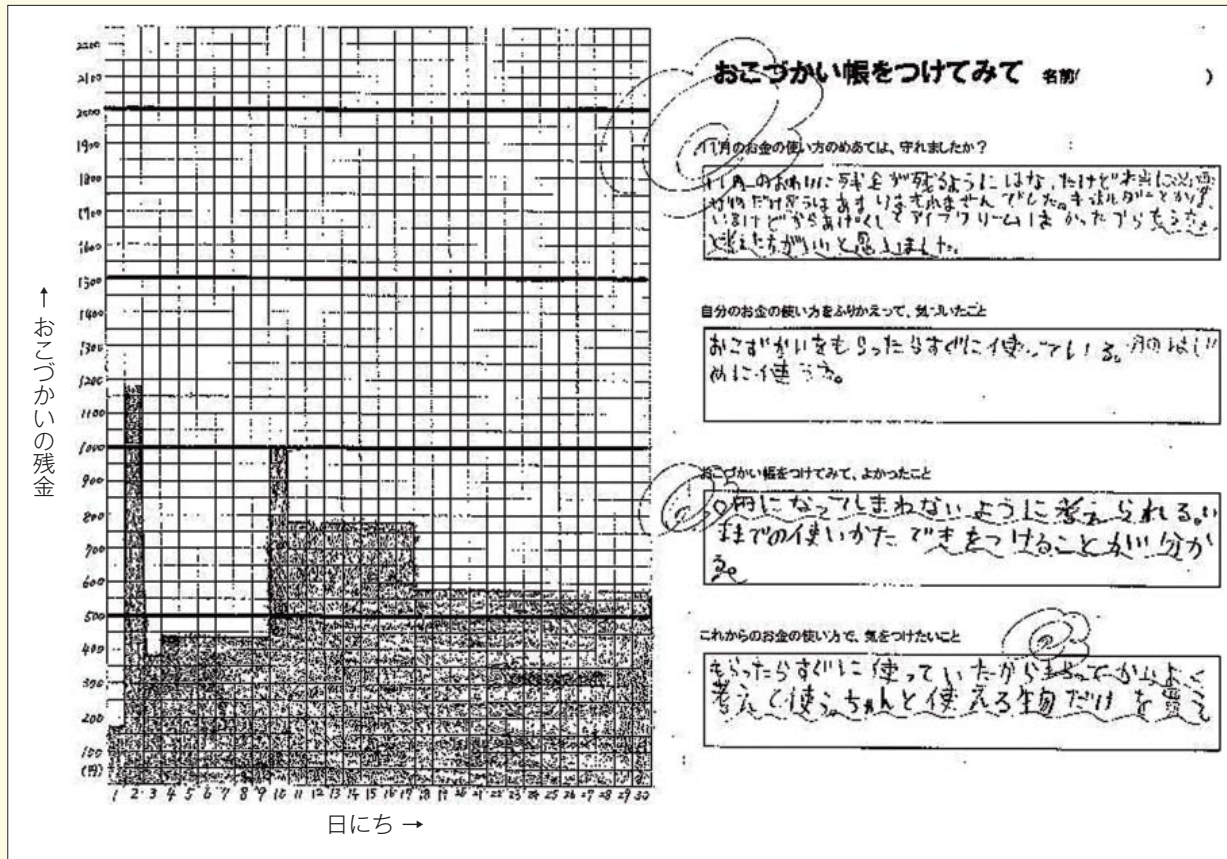 2200
2100
2000
1900
1800
1700
1600
1500
1400
1300
1200
1100
1000
900
800
700
600
500
400
300
200
100
(円)
1 2 3 4 5 6 7 8 9 10 11 12 13 14 15 16 17 18 19 20 21 22 23 24 25 26 27 28 29 30
↑ おこづかいの残金
日にち →
おこづかい帳をつけてみて 名前( )
11月のお金の使い方のめあては、守れましたか?
11月のおわりに残金が残るようにはなったけど本当に必要
な物だけ買うはあまりまもれませんでした。
いるけどからあげくしとアイスクリームは
と考えた方がいいと思いました。
自分のお金の使い方をふりかえって、気づいたこと
おこずかいをもらったらすぐに使っている。月のはじ
めに使う
おこづかい帳をつけてみて、よかったこと
0円になってしまわないように考えられる。い
ままでの使いかたできをつけることが分か
る。
これからのお金の使い方で、気をつけたいこと
もらったらすぐに使っていたからもらってからよく
考えて使う。ちゃんと使える物だけを買う